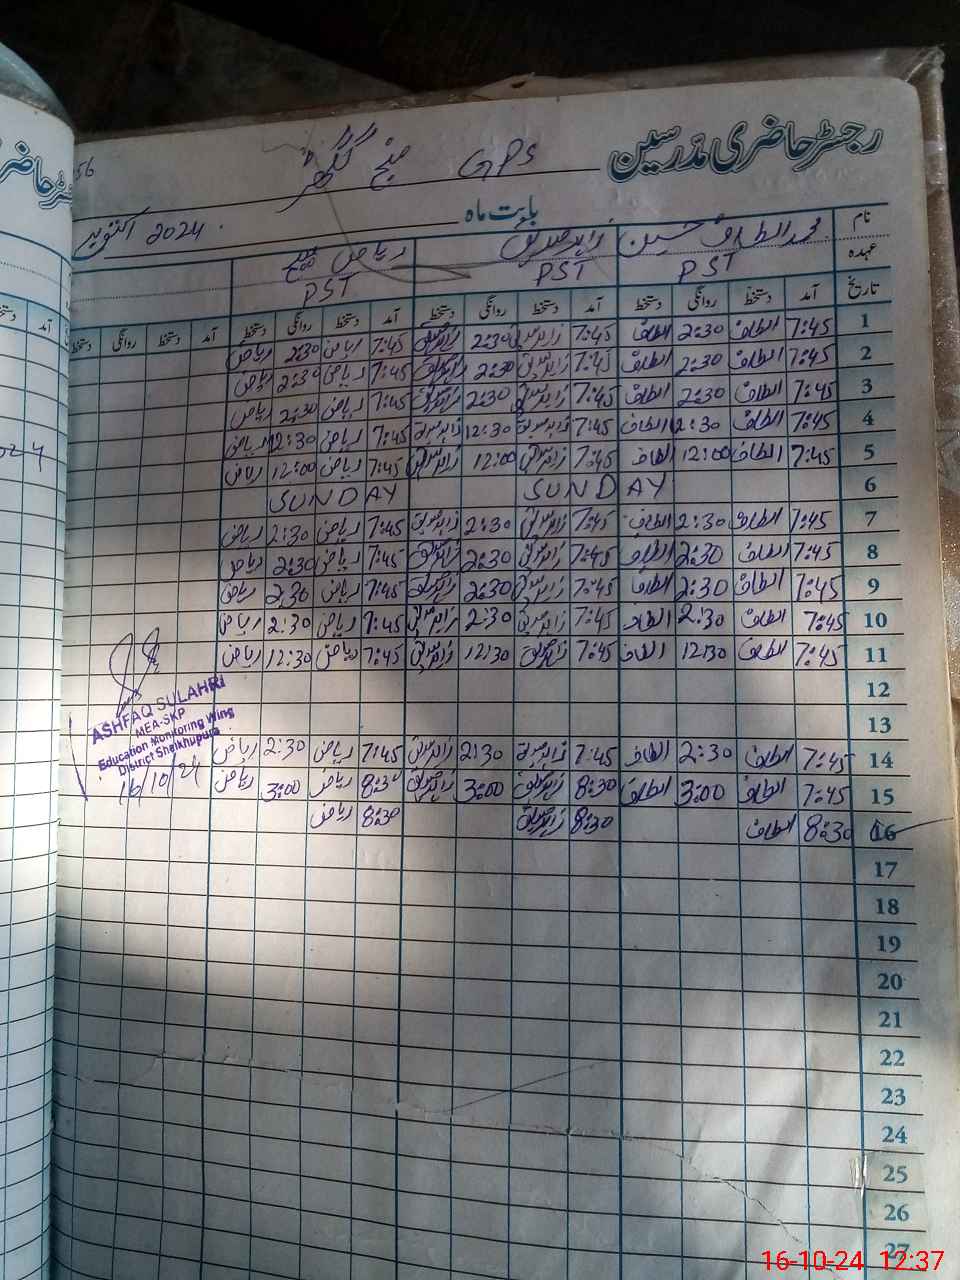 رجسٹر حاضری مدرسین GPS
بابت ماه اکتوبر 2024
نام محمد الطاف حسین زاہد صدیق ریاض
عہدہ PST PST PST
تاریخ آمد دستخط روانگی دستخط آمد دستخط روانگی دستخط آمد دستخط روانگی دستخط آمد دستخط روانگی دستخط
1 7:45 الطاف 2:30 الطاف 7:45 زاہد صدیق 2:30 زاہد صدیق 7:45 ریاض 2:30 ریاض
2 7:45 الطاف 2:30 الطاف 7:45 زاہد صدیق 2:30 زاہد صدیق 7:45 ریاض 2:30 ریاض
3 7:45 الطاف 2:30 الطاف 7:45 زاہد صدیق 2:30 زاہد صدیق 7:45 ریاض 2:30 ریاض
4 7:45 الطاف 12:30 الطاف 7:45 زاہد صدیق 12:30 زاہد صدیق 7:45 ریاض 12:30 ریاض
5 7:45 الطاف 12:00 الطاف 7:45 زاہد صدیق 12:00 زاہد صدیق 7:45 ریاض 12:00 ریاض
6 SUNDAY SUNDAY
7 7:45 الطاف 2:30 الطاف 7:45 زاہد صدیق 2:30 زاہد صدیق 7:45 ریاض 2:30 ریاض
8 7:45 الطاف 2:30 الطاف 7:45 زاہد صدیق 2:30 زاہد صدیق 7:45 ریاض 2:30 ریاض
9 7:45 الطاف 2:30 الطاف 7:45 زاہد صدیق 2:30 زاہد صدیق 7:45 ریاض 2:30 ریاض
10 7:45 الطاف 2:30 الطاف 7:45 زاہد صدیق 2:30 زاہد صدیق 7:45 ریاض 2:30 ریاض
11 7:45 الطاف 12:30 الطاف 7:45 زاہد صدیق 12:30 زاہد صدیق 7:45 ریاض 12:30 ریاض
12
13
14 7:45 الطاف 2:30 الطاف 7:45 زاہد صدیق 2:30 زاہد صدیق 7:45 ریاض 2:30 ریاض
15 7:45 الطاف 3:00 الطاف 8:30 زاہد صدیق 3:00 زاہد صدیق 8:30 ریاض 3:00 ریاض
16 8:30 الطاف 8:30 زاہد صدیق 8:30 ریاض
17
18
19
20
21
22
23
24
25
26
27
ASHFAQ SULAHRI
MEA-SKP
Education Monitoring Wing
District Sheikhupura
16/10/24
16-10-24 12:37